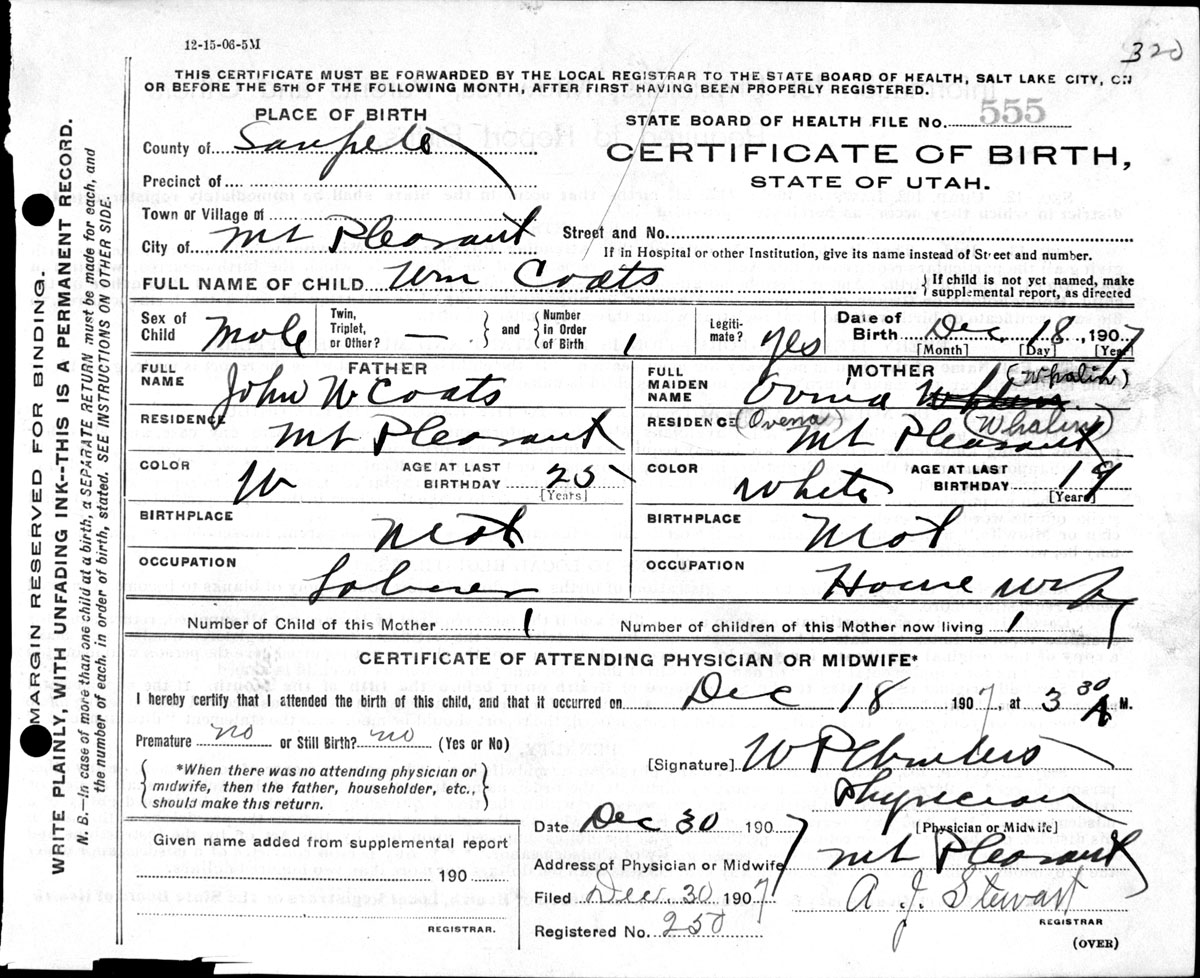 12-15-06-5M
320
THIS CERTIFICATE MUST BE FORWARDED BY THE LOCAL REGISTRAR TO THE STATE BOARD OF HEALTH, SALT LAKE CITY, ON
OR BEFORE THE 5TH OF THE FOLLOWING MONTH, AFTER FIRST HAVING BEEN PROPERLY REGISTERED.
MARGIN RESERVED FOR BINDING.
WRITE PLAINLY, WITH UNFADING INK--THIS IS A PERMANENT RECORD.
N. B.—In case of more than one child at a birth, a SEPARATE RETURN must be made for each, and
the number of each, in order of birth, stated. SEE INSTRUCTIONS ON OTHER SIDE.
PLACE OF BIRTH
STATE BOARD OF HEALTH FILE NO. 555
County of Sanpete
CERTIFICATE OF BIRTH,
STATE OF UTAH.
Precinct of
Town or Village of
City of Mt Pleasant Street and No.
If in Hospital or other Institution, give its name instead of Street and number.
FULL NAME OF CHILD Wm Coats } If child is not yet named, make
supplemental report, as directed
Sex of Child Male Twin, Triplet, or Other? — } and { Number in Order of Birth 1 Legiti-mate? yes Date of Birth Dec 18, 1907
[Month] [Day] [Year]
FATHER
FULL NAME John W Coats
RESIDENCE Mt Pleasant
COLOR W AGE AT LAST BIRTHDAY 25
[Years]
BIRTHPLACE
OCCUPATION Laborer
MOTHER
FULL MAIDEN NAME (Whaling)
RESIDENCE (Ovena) (Whaling) Mt Pleasant
COLOR White AGE AT LAST BIRTHDAY 19
[Years]
BIRTHPLACE
OCCUPATION House wife
Number of Child of this Mother 1 Number of children of this Mother now living 1
CERTIFICATE OF ATTENDING PHYSICIAN OR MIDWIFE*
I hereby certify that I attended the birth of this child, and that it occurred on Dec 18 1907 at 3 30 A M.
Premature no or Still Birth? no (Yes or No)
[Signature] W P
*When there was no attending physician or
midwife, then the father, householder, etc.,
should make this return.
Physician
[Physician or Midwife]
Date Dec 30 1907
Given name added from supplemental report
190
REGISTRAR.
Address of Physician or Midwife Mt Pleasant
Filed Dec. 30 1907 A J. Stewart
REGISTRAR
Registered No. 250
(OVER)